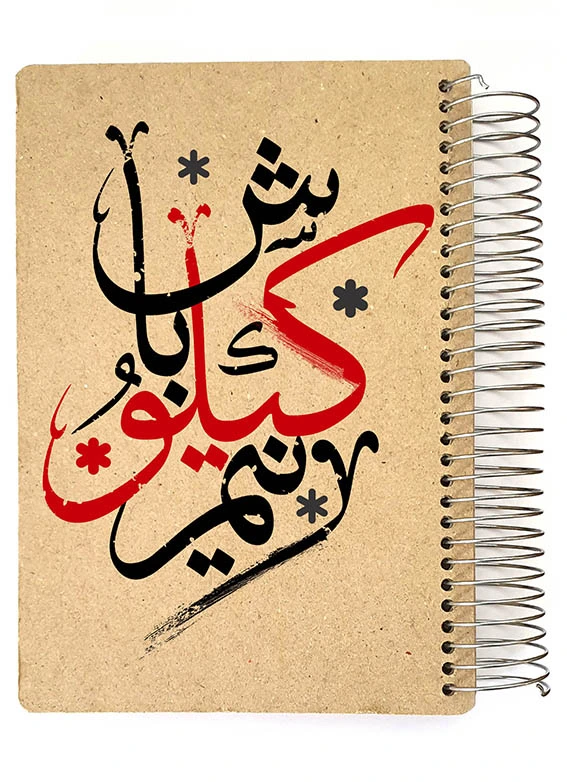 نیم
کیلو
باش